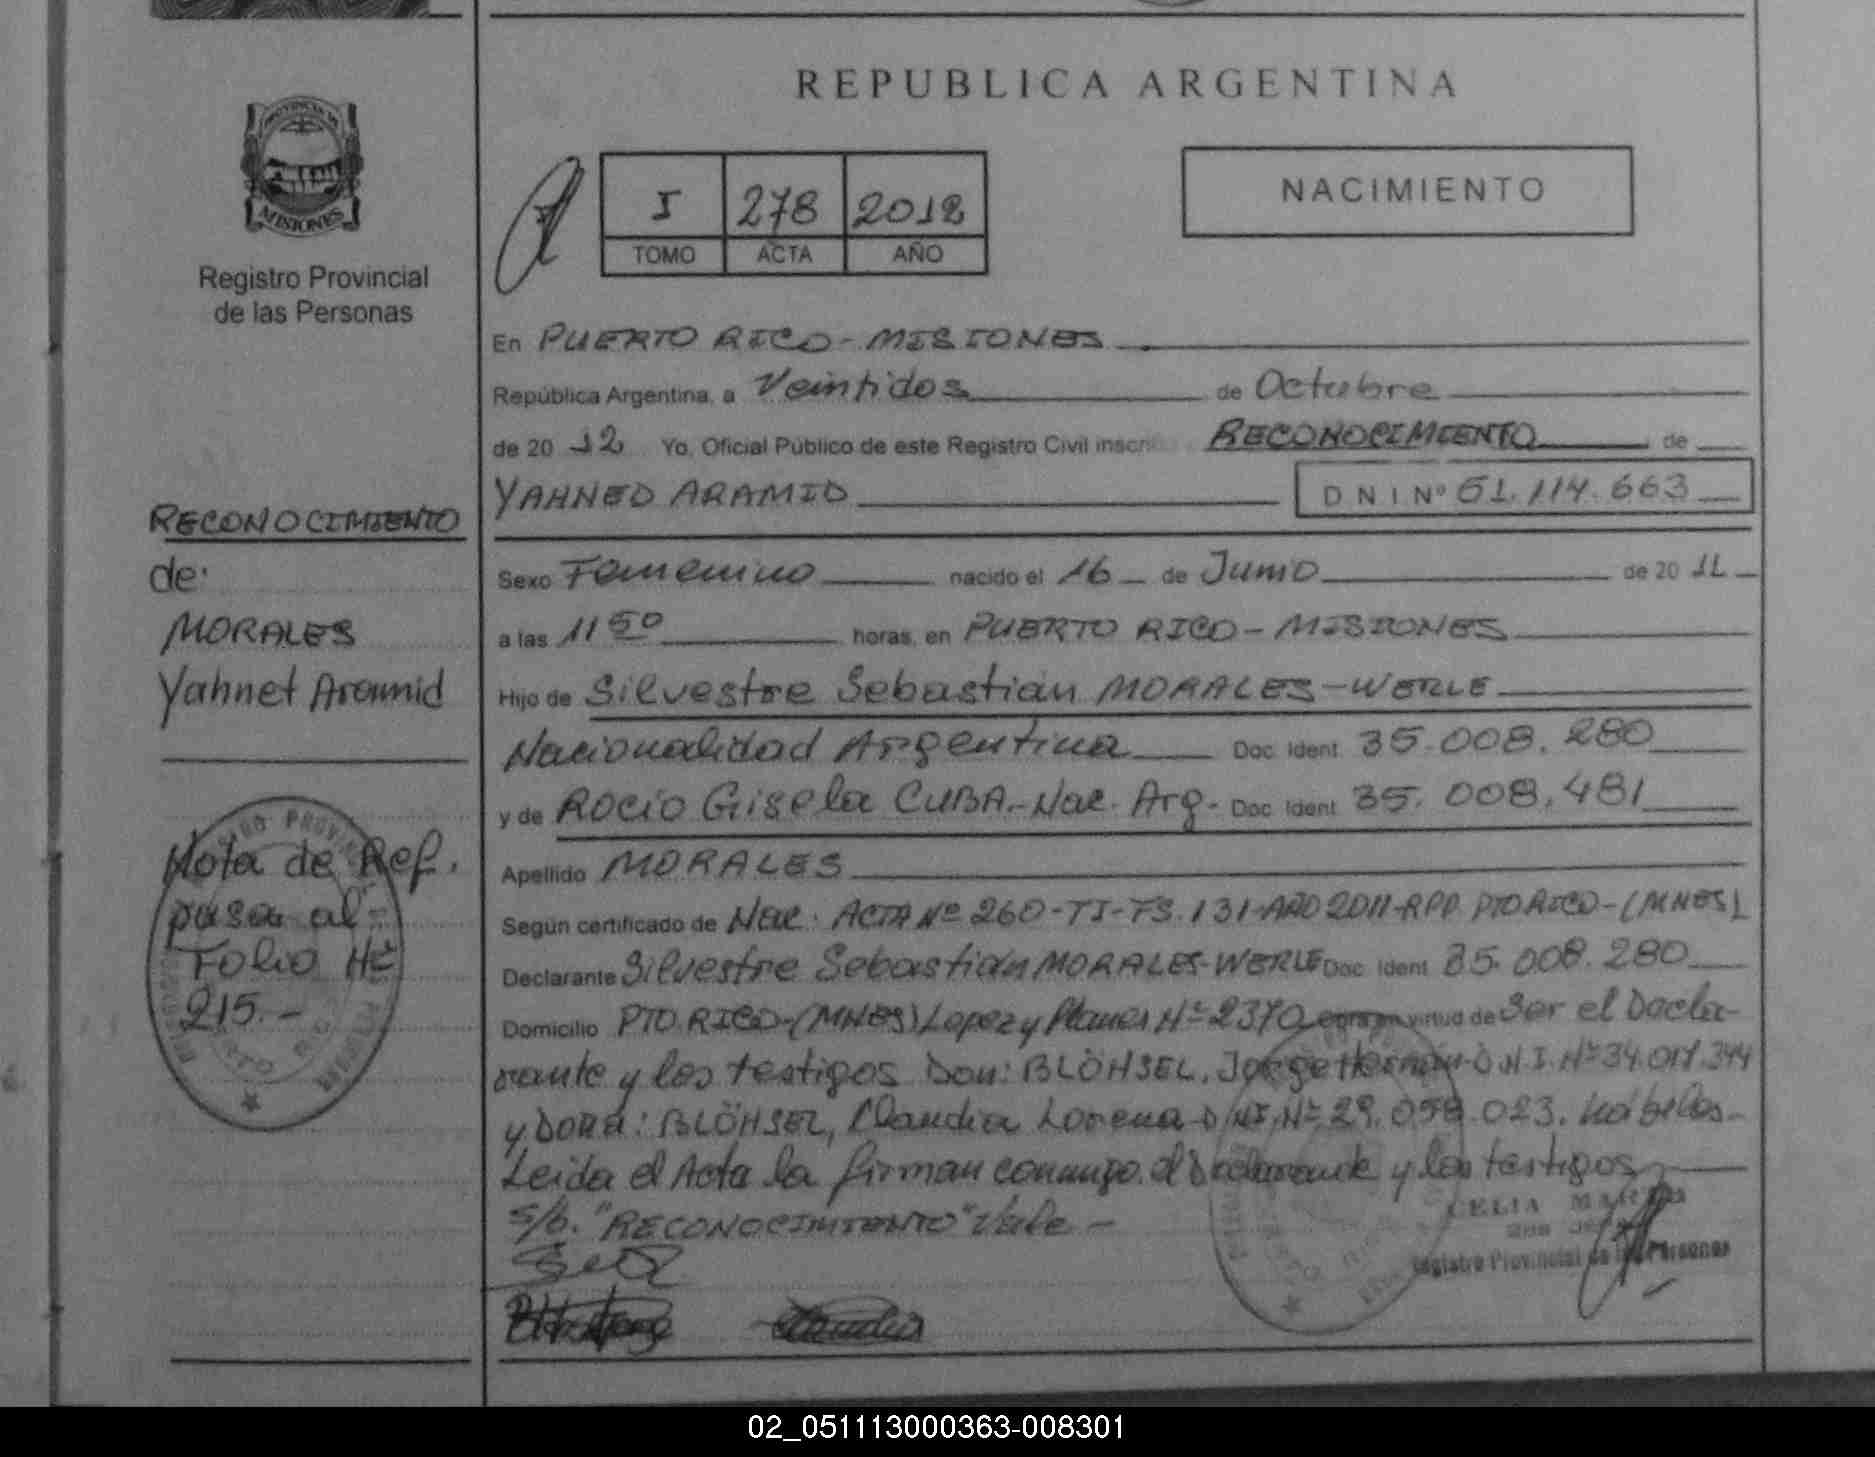 REPUBLICA ARGENTINA
PROVINCIA DE
MISIONES
Registro Provincial
de las Personas
I 278 2012
TOMO ACTA AÑO
NACIMIENTO
En PUERTO RICO - MISIONES
República Argentina, a Veintidos de Octubre
de 20 12 Yo, Oficial Público de este Registro Civil RECONOCIMIENTO de
YAHNED ARAMID DNI Nº 51.114.663
Sexo Femenino nacido el 16 de Junio de 20 11
a las 11 50 horas, en PUERTO RICO - MISIONES
Hijo de Silvestre Sebastián MORALES-WERLE
Nacionalidad Argentina Doc. Ident. 35.008.280
y de ROCIO Gisela CUBA.- Nac. Arg- Doc. Ident. 35.008.481
Apellido MORALES
Según certificado de Nac. ACTA Nº 260-TI-FS.131-AÑO 2011-RPP. PTO RICO-(MNES)
Declarante Silvestre Sebastián MORALES-WERLE Doc. Ident. 35.008.280
Domicilio PTO.RICO-(MNES) Lopez y Planes Nº 2370 virtud de Ser el Decla-
rante y los testigos Don: BLÖHSEL, Jorge Hernán D.N.I. Nº 34.017.344
y Doña: BLÖHSEL, Claudia Lorena D.N.I. Nº 29.058.023. hábiles-
Leida el Acta la firman conmigo, el Declarante y los testigos
S/b. "RECONOCIMIENTO" Vale -
CELIA
Registro Provincial de las Personas
RECONOCIMIENTO
de:
MORALES
Yahnet Aramid
Nota de Ref.
pasa al
Folio Nº
215.-
02_051113000363-008301